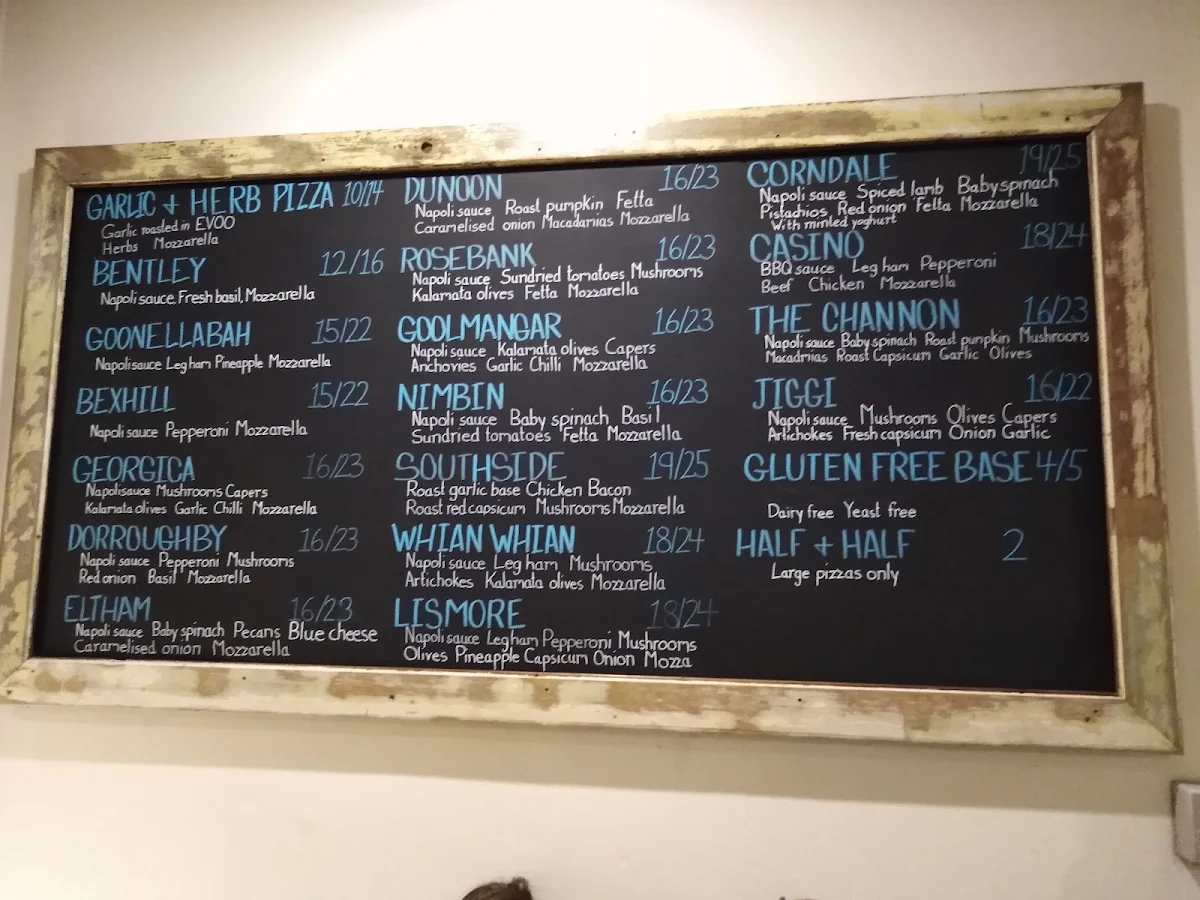 GARLIC + HERB PIZZA 10/14
Garlic roasted in EVOO
Herbs Mozzarella
BENTLEY 12/16
Napoli sauce, Fresh basil, Mozzarella
GOONELLABAH 15/22
Napoli sauce Leg ham Pineapple Mozzarella
BEXHILL 15/22
Napoli sauce Pepperoni Mozzarella
GEORGICA 16/23
Napoli sauce Mushrooms Capers
Kalamata olives Garlic Chilli Mozzarella
DORROUGHBY 16/23
Napoli sauce Pepperoni Mushrooms
Red onion Basil Mozzarella
ELTHAM 16/23
Napoli sauce Baby spinach Pecans Blue cheese
Caramelised onion Mozzarella
DUNOON 16/23
Napoli sauce Roast pumpkin Fetta
Caramelised onion Macadamias Mozzarella
ROSEBANK 16/23
Napoli sauce Sundried tomatoes Mushrooms
Kalamata olives Fetta Mozzarella
GOOLMANGAR 16/23
Napoli sauce Kalamata olives Capers
Anchovies Garlic Chilli Mozzarella
NIMBIN 16/23
Napoli sauce Baby spinach Basil
Sundried tomatoes Fetta Mozzarella
SOUTHSIDE 19/25
Roast garlic base Chicken Bacon
Roast red capsicum Mushrooms Mozzarella
WHIAN WHIAN 18/24
Napoli sauce Leg ham Mushrooms
Artichokes Kalamata olives Mozzarella
LISMORE 18/24
Napoli sauce Leg ham Pepperoni Mushrooms
Olives Pineapple Capsicum Onion Mozza
CORNDALE 19/25
Napoli sauce Spiced lamb Baby spinach
Pistachios Red onion Fetta Mozzarella
With minted yoghurt
CASINO 18/24
BBQ sauce Leg ham Pepperoni
Beef Chicken Mozzarella
THE CHANNON 16/23
Napoli sauce Baby spinach Roast pumpkin Mushrooms
Macadmias Roast Capsicum Garlic Olives
JIGGI 16/22
Napoli sauce Mushrooms Olives Capers
Artichokes Fresh capsicum Onion Garlic
GLUTEN FREE BASE 4/5
Dairy free Yeast free
HALF + HALF 2
Large pizzas only